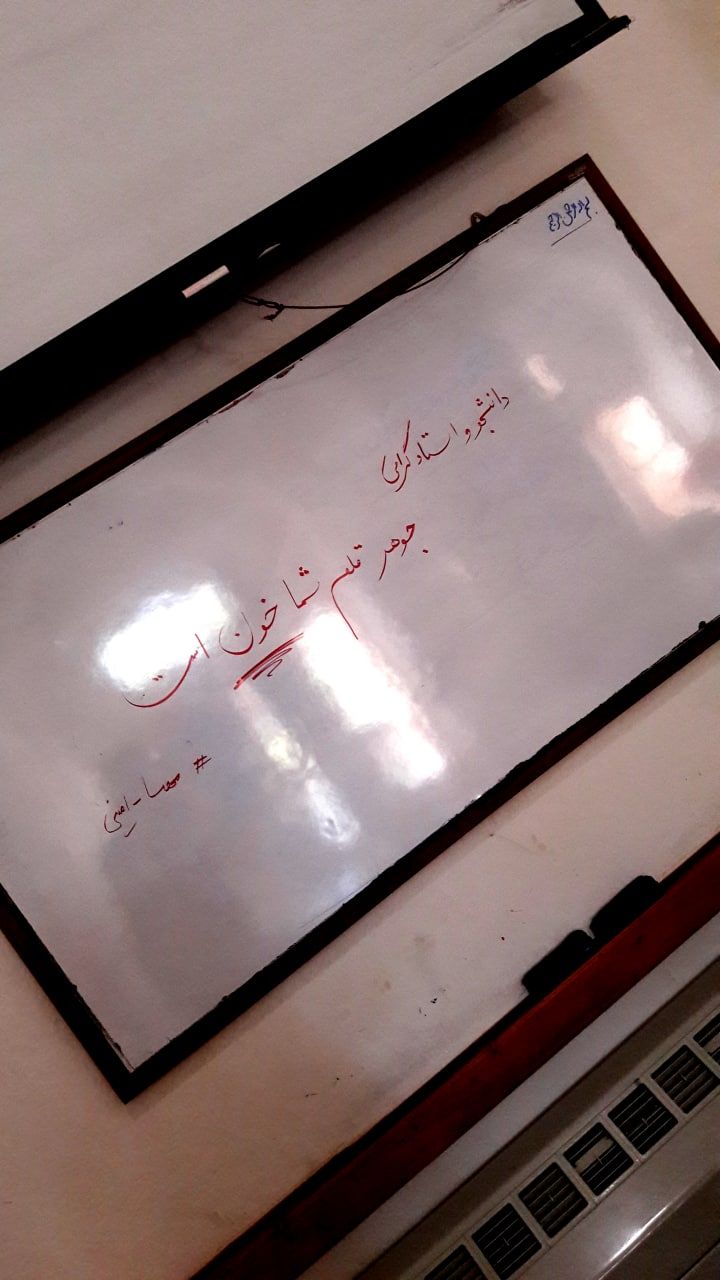 دانشجو و استاد گرامی
جوهر قلم شما خون است
# مهسا - امینی